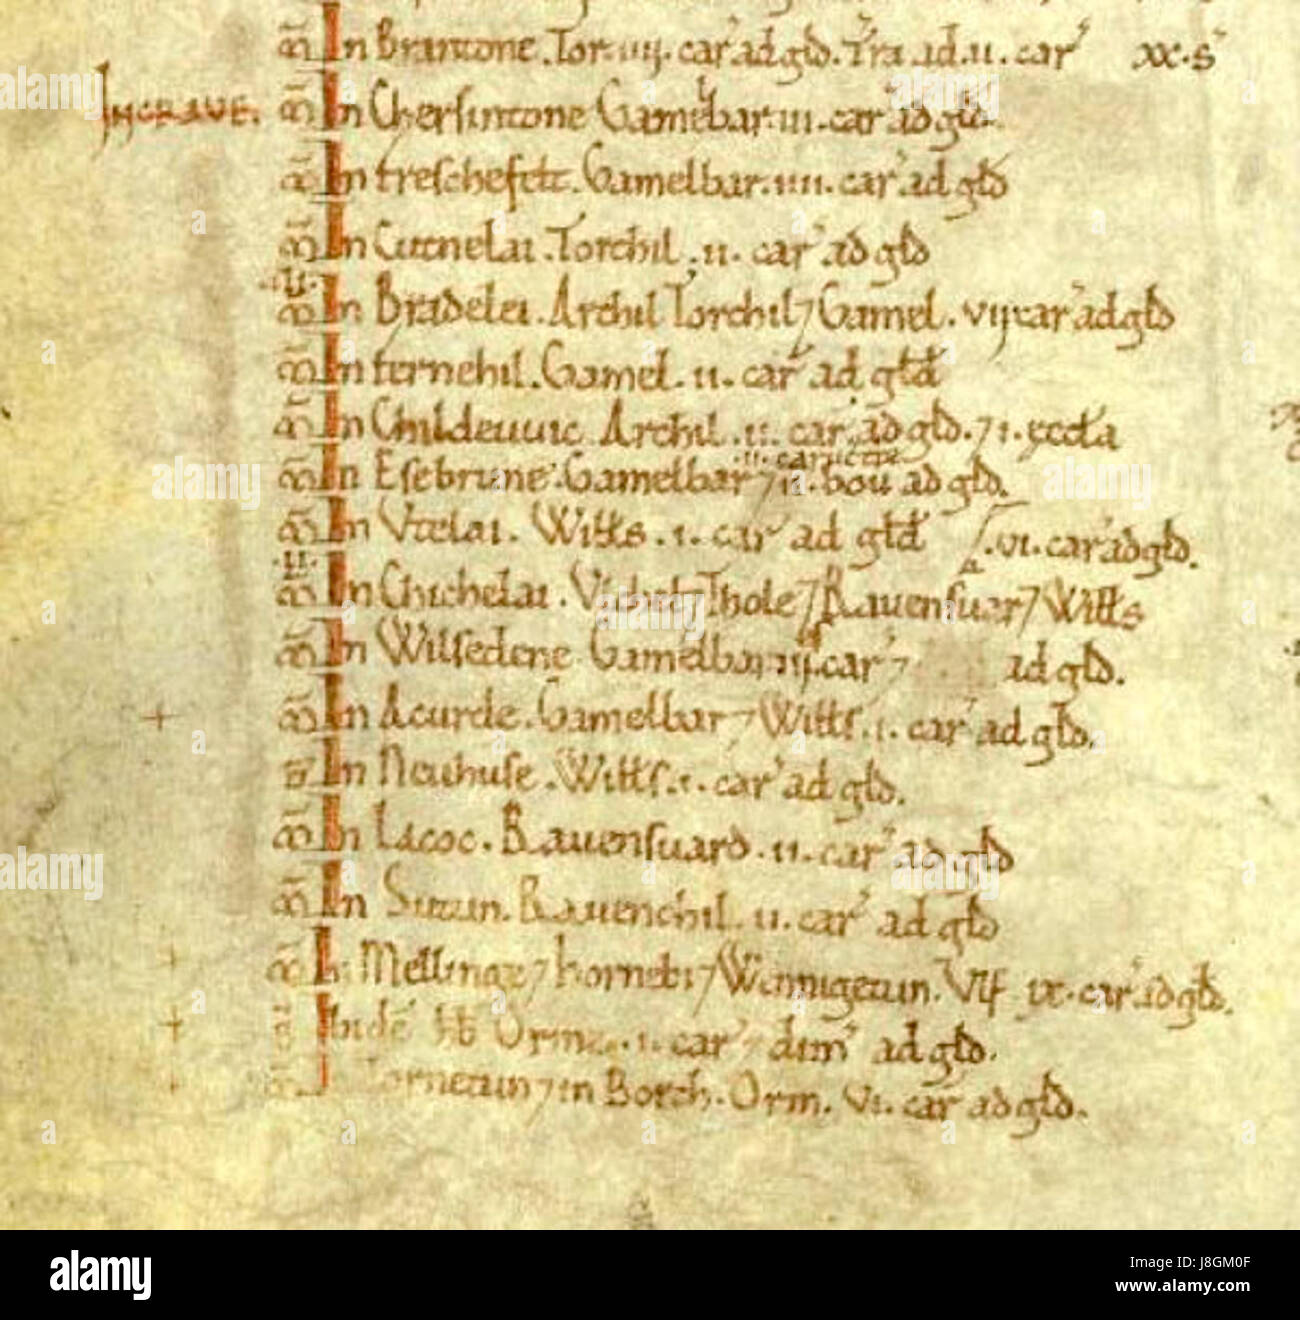 In Brantone. Tor. iiij. car' ad gld. Tra ad. ii. car' xx. s'
INCRAVE. In Chersintone Gamelbar. iii. car' ad gld.
In treschefelt. Gamelbar. iiii. car' ad gld
In Cutnelai. Torchil. ii. car' ad gld
In Bradelei. Archil Torchil ⁊ Gamel. vij. car' ad gld
In fernehil. Gamel. ii. car' ad gld
In Childeuuic Archil. ii. car' ad gld. ⁊ i. eccla
ii. carucatæ
In Esebrune. Gamelbar ⁊ ii. bou ad gld.
In Utelai. Wills. i. car' ad gld
vi. car' ad gld.
In Chichelai. Uchel ⁊ Thole ⁊ Rauensuar ⁊ Wills
In Wilsedene Gamelbar iij. car' ⁊ ad gld.
In Acurde. Gamelbar ⁊ Wills. i. car' ad gld.
In Neuhuse. Wills. i. car' ad gld.
In Lacoc. Rauensuard. ii. car' ad gld
In Sutun. Rauenchil. ii. car' ad gld
In Mellinge ⁊ hornebi ⁊ Wennigetun. Ulf ix. car' ad gld.
Ibide hb Orme. i. car' ⁊ dim' ad gld.
Tornetun ⁊ in Borch. Orm. vi. car' ad gld.
alamy
Image ID: J8GM0F
www.alamy.com